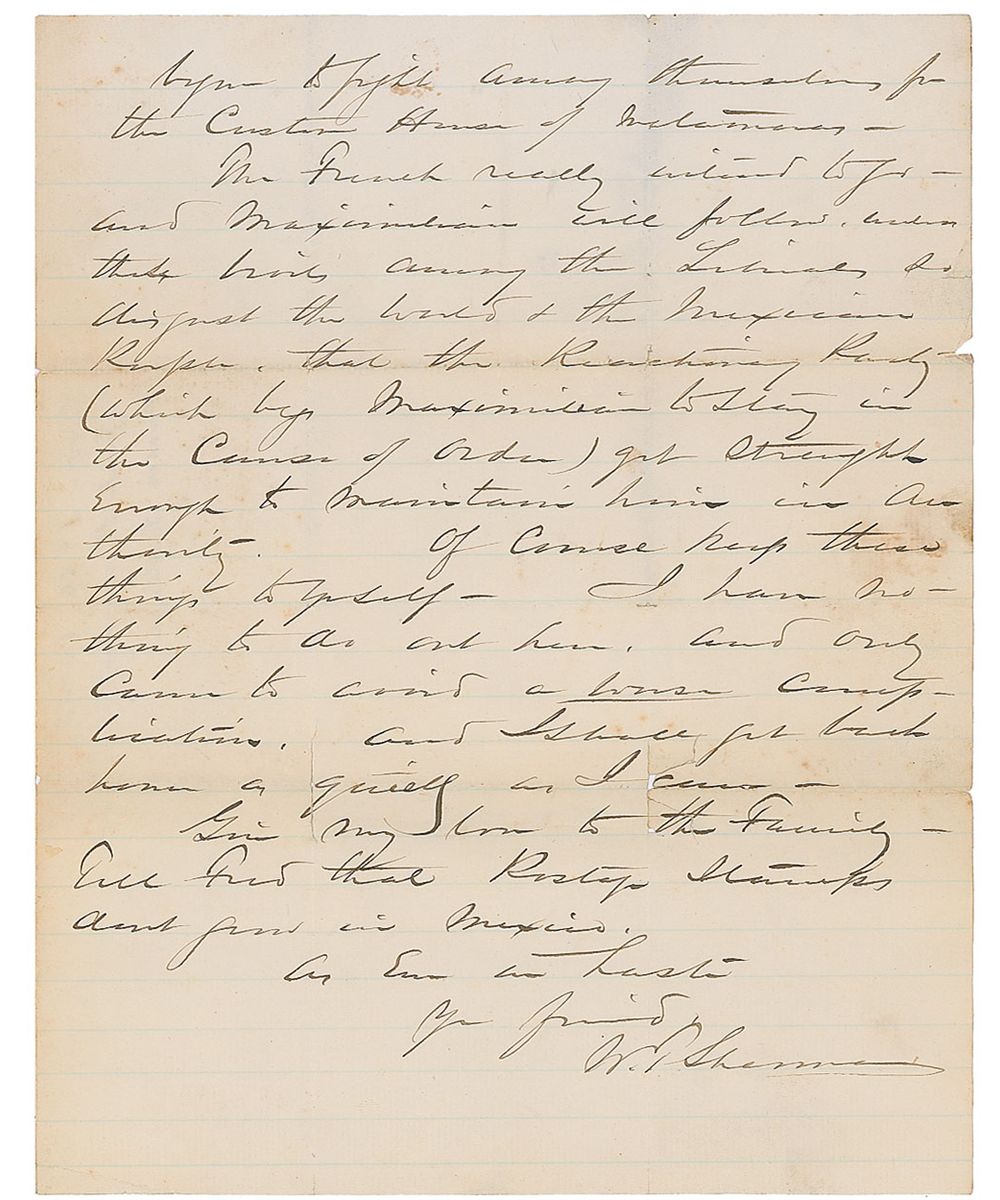 begun to fight among themselves for
the Custom House of Matamoras -
The French really intend to go -
and Maximilian will follow, unless
these broils among the Liberals so
disgust the world & the Mexican
People, that the Reactionary Party
(which begs Maximilian to stay in
the Cause of Order) get strength
enough to maintain him in Au
thority. Of Course keep these
things to yrself - I have no-
thing to do out here, and only
Came to avoid a worse comp-
lication, and I shall get back
home as quietly as I can -
Give my love to the Family -
Tell Fred that Postage Stamps
dont grow in Mexico.
As Ever in haste
Yr friend,
W. T. Sherman